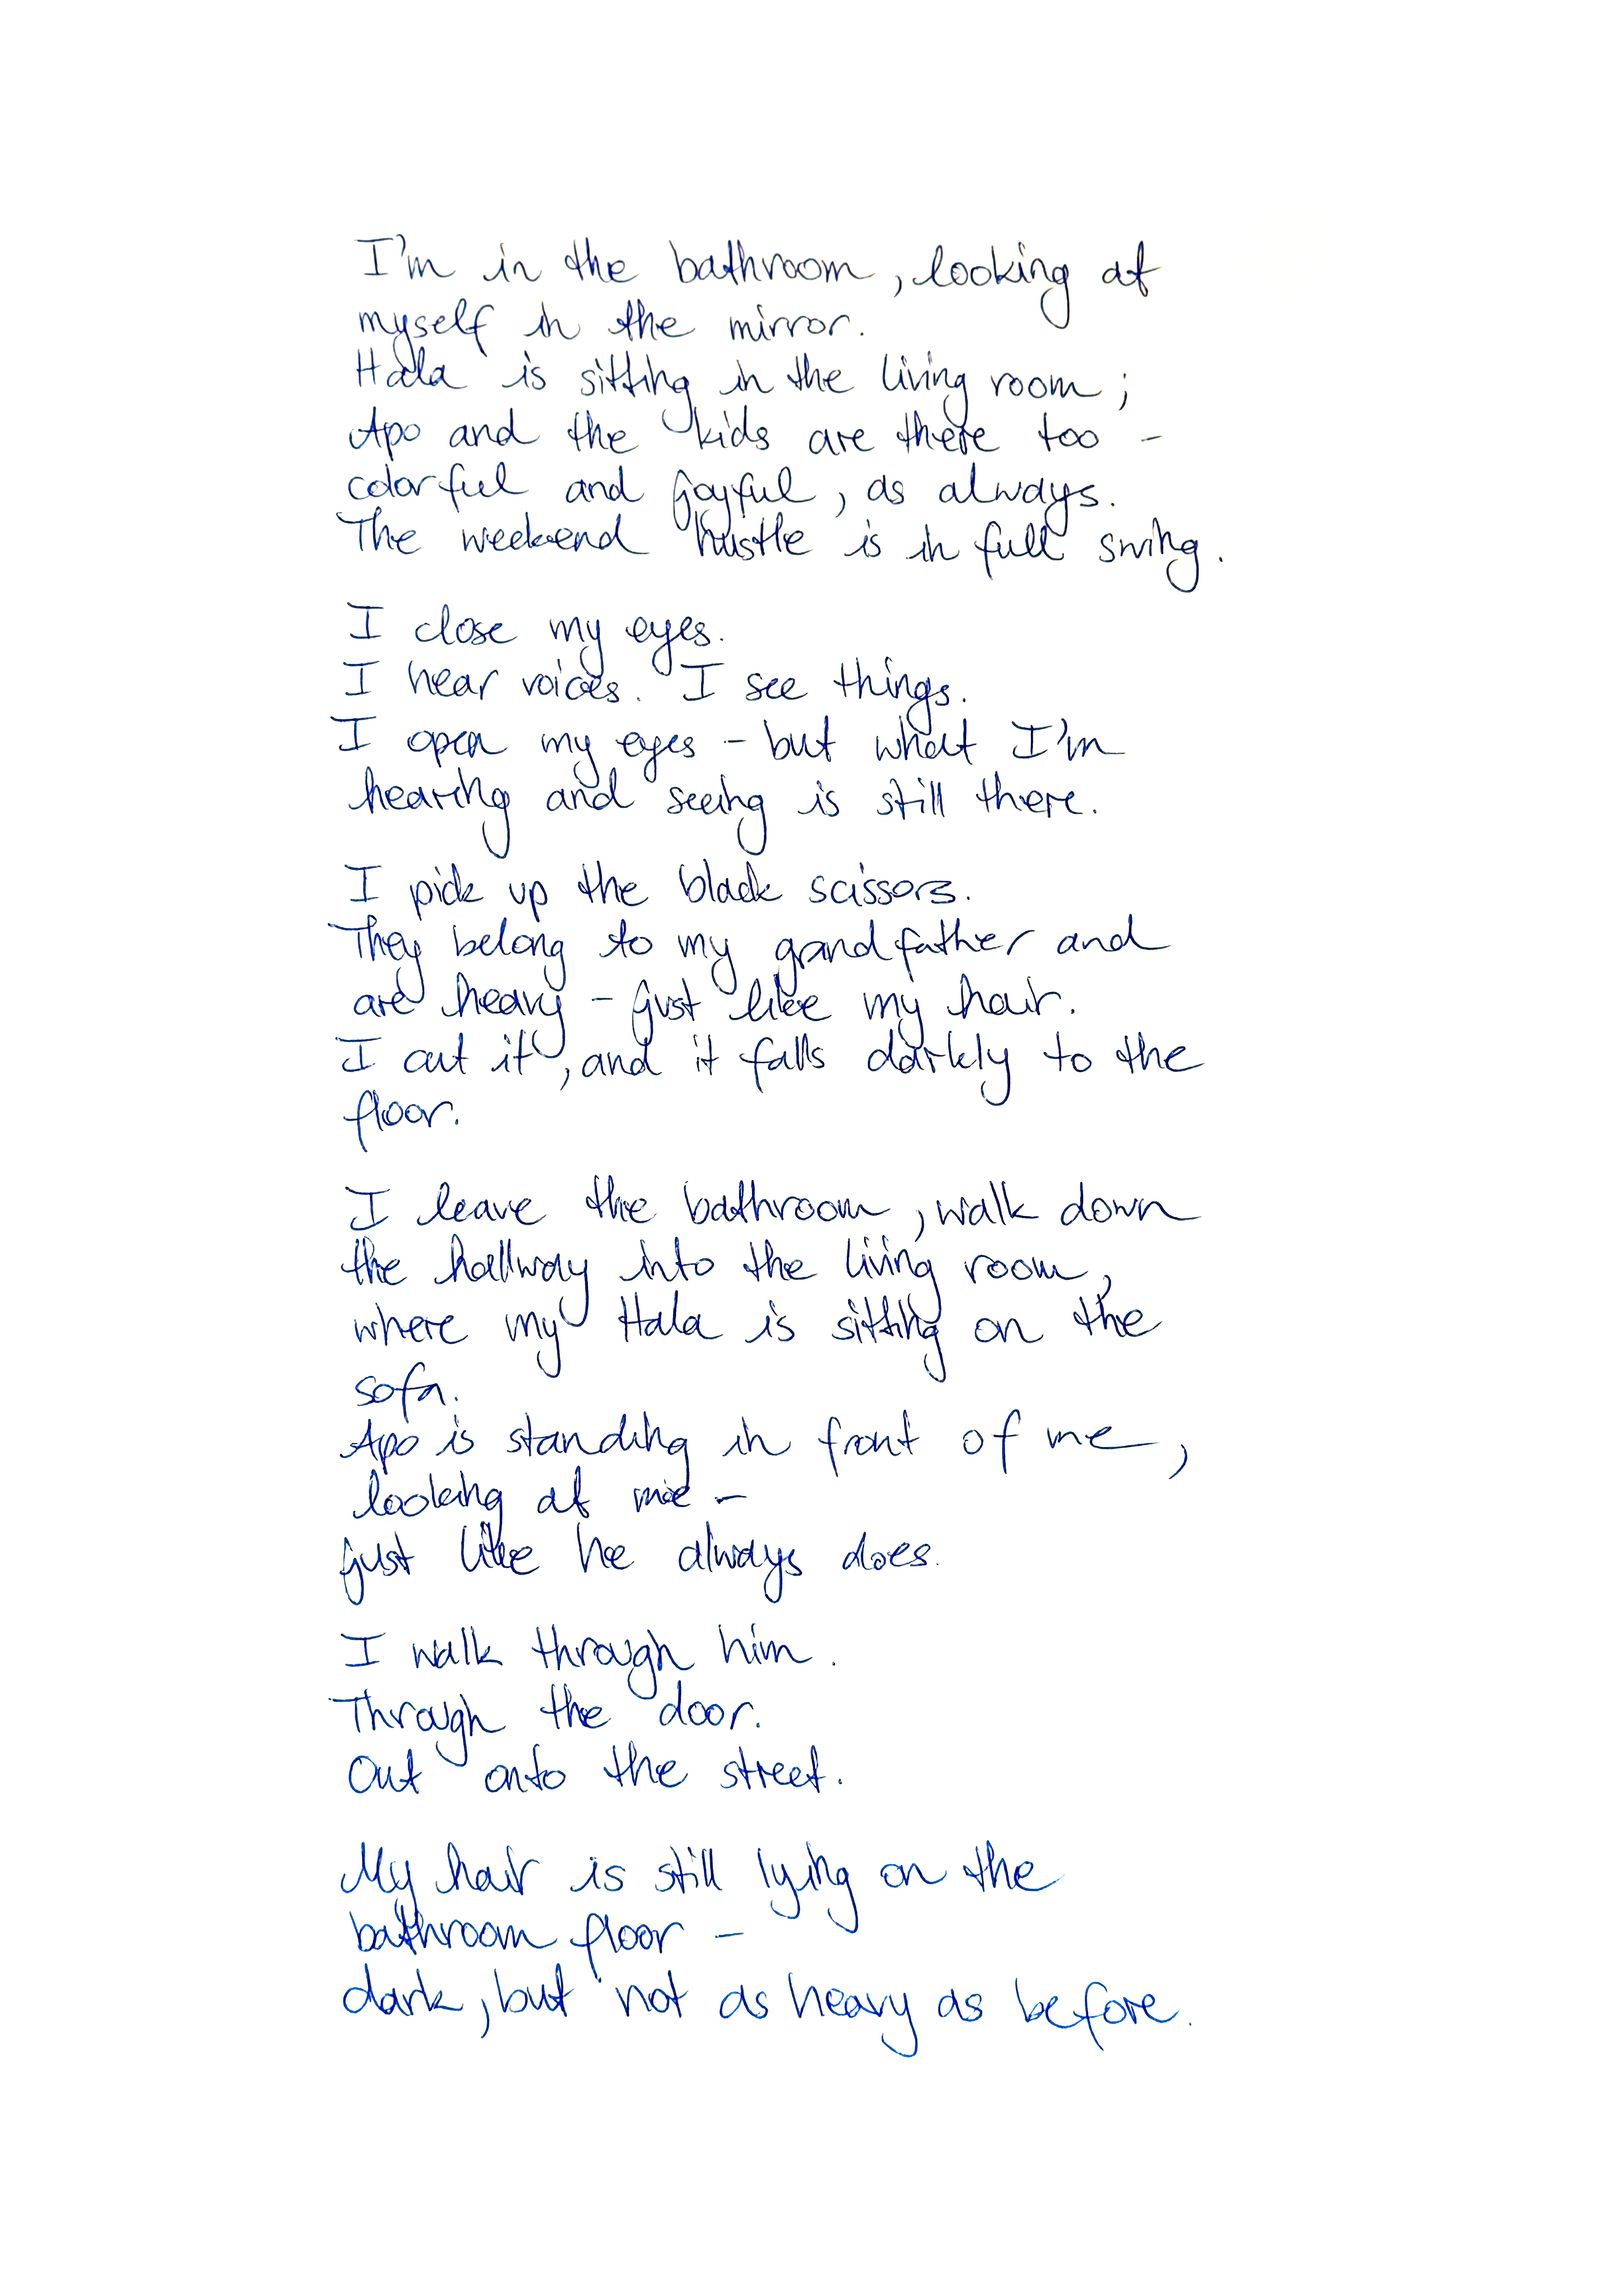 I'm in the bathroom, looking at
myself in the mirror.
Hala is sitting in the living room;
Apo and the kids are there too –
colorful and joyful, as always.
The weekend hustle is in full swing.
I close my eyes.
I hear voices. I see things.
I open my eyes – but what I'm
hearing and seeing is still there.
I pick up the black scissors.
They belong to my grandfather and
are heavy – just like my hair.
I cut it, and it falls darkly to the
floor.
I leave the bathroom, walk down
the hallway into the living room,
where my Hala is sitting on the
sofa.
Apo is standing in front of me,
looking at me –
just like he always does.
I walk through him.
Through the door.
Out onto the street.
My hair is still lying on the
bathroom floor –
dark, but not as heavy as before.